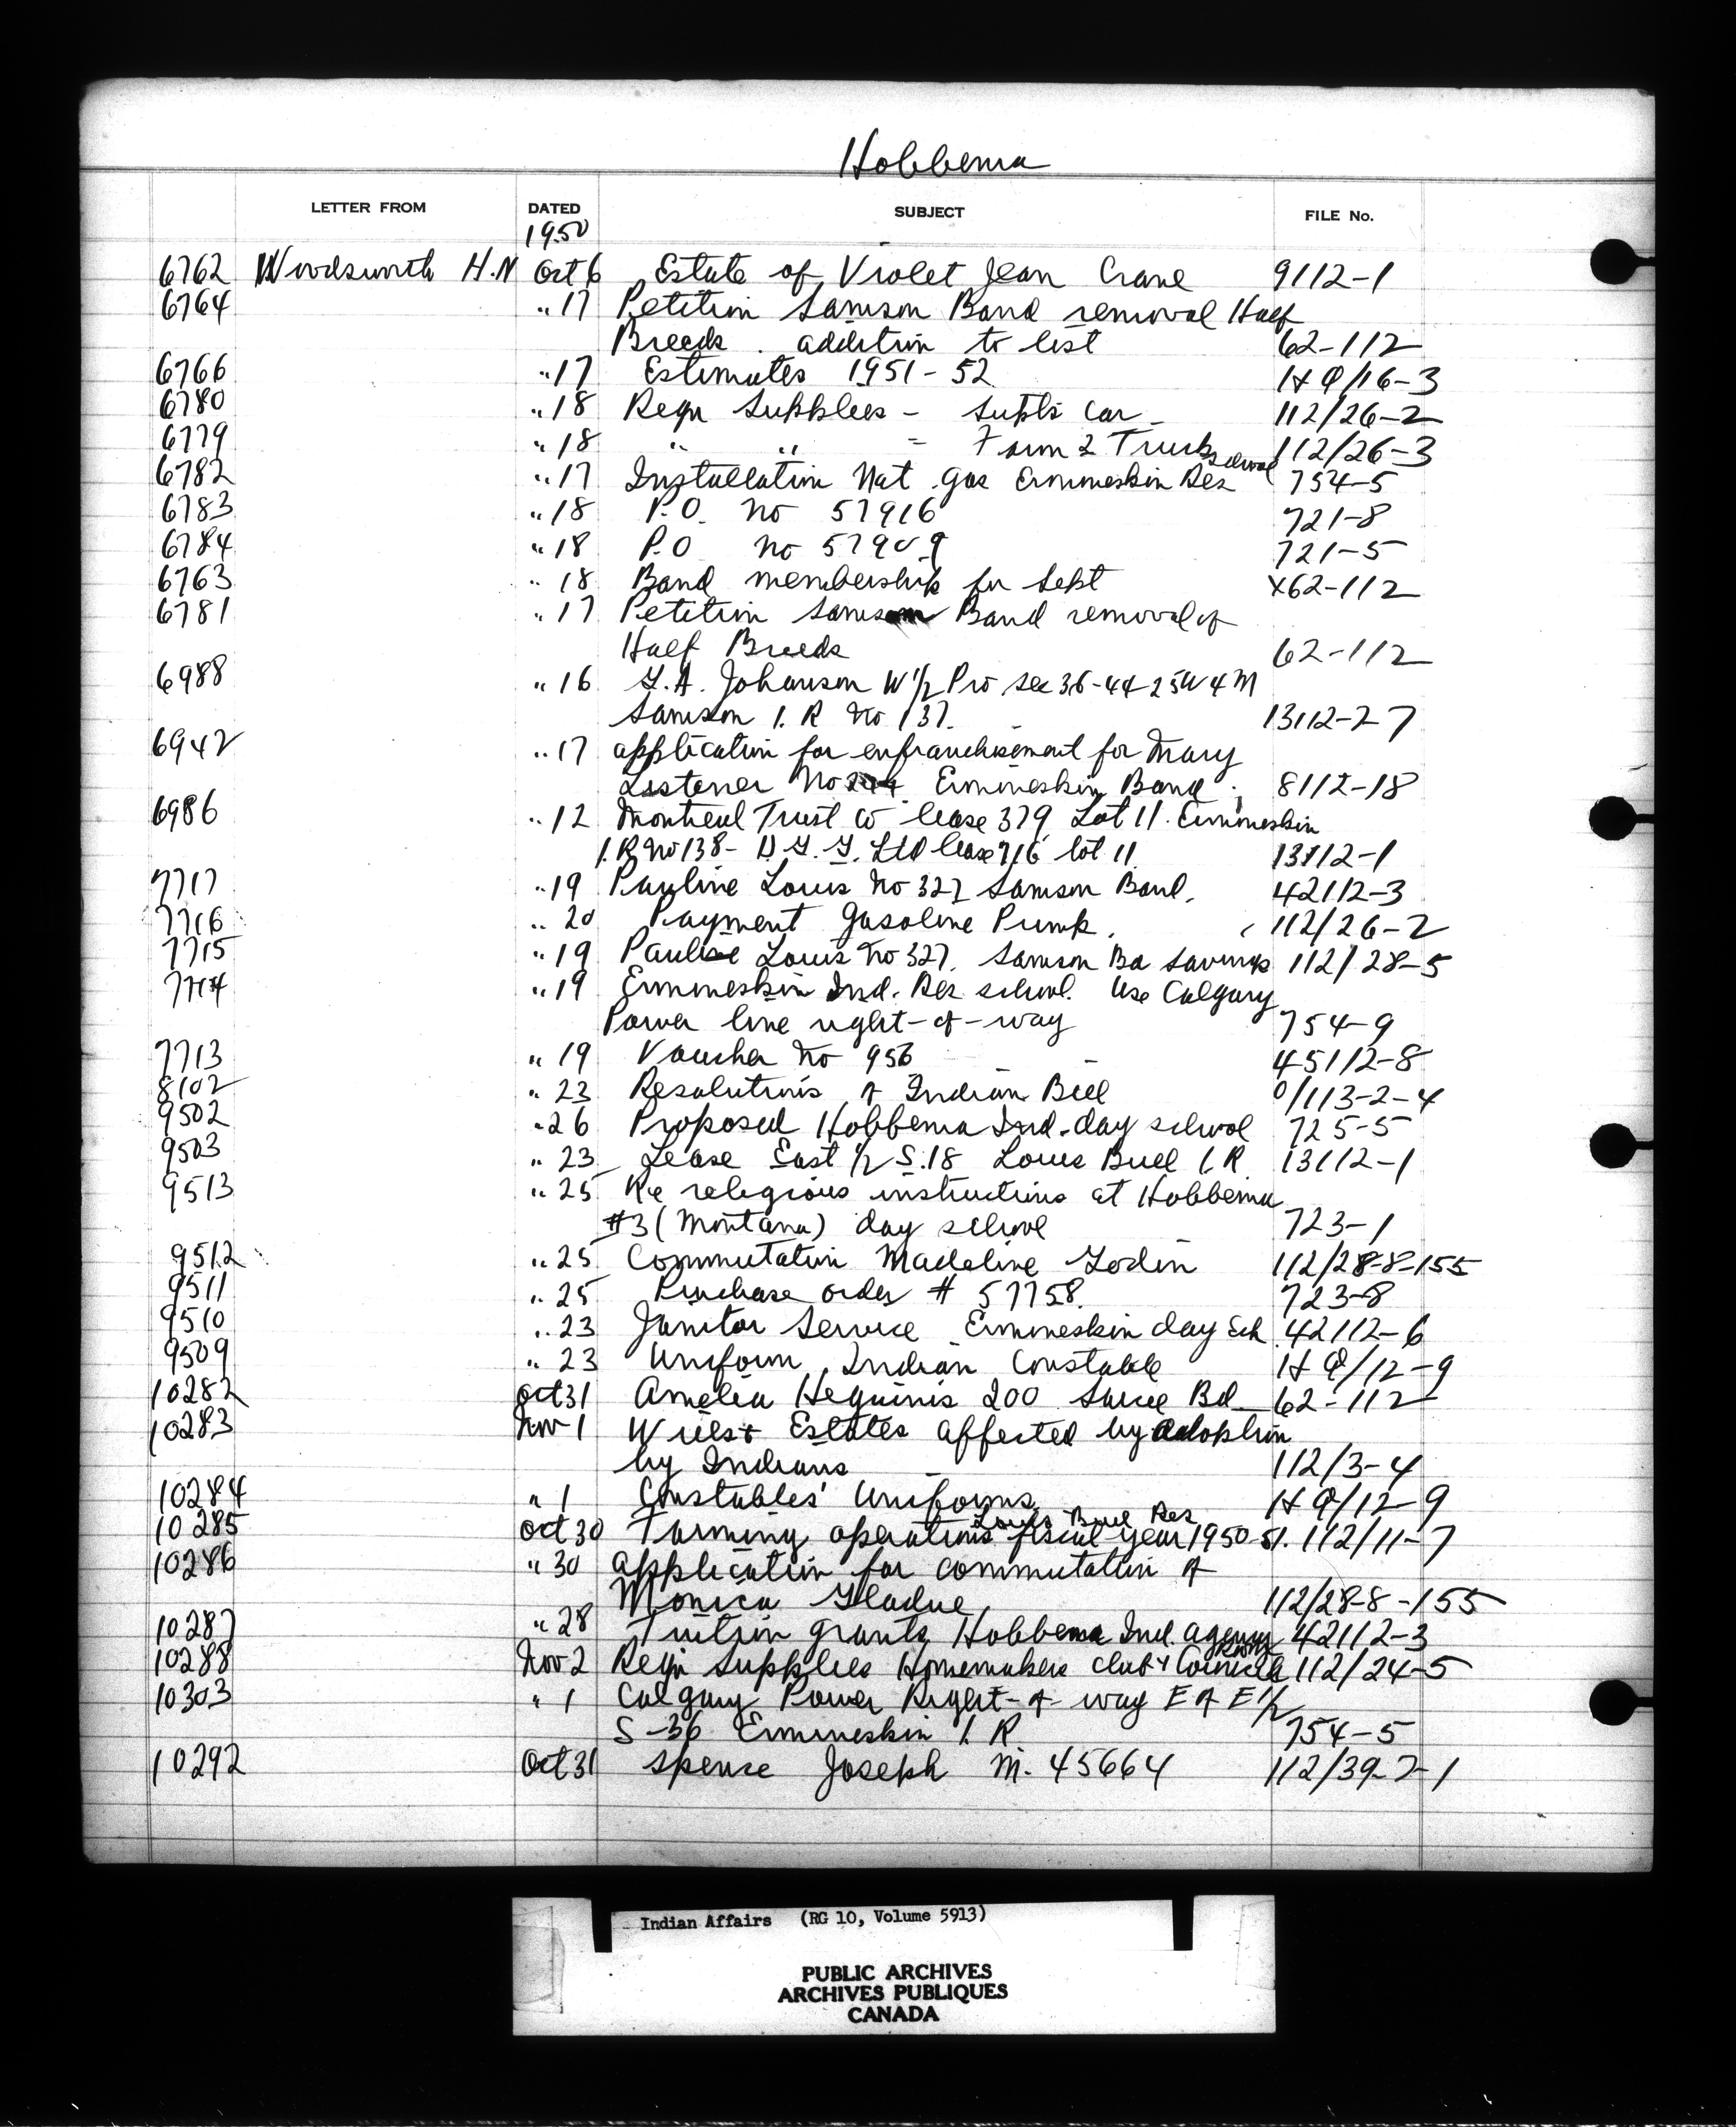 Hobbema
LETTER FROM DATED SUBJECT FILE No.
1950
6762 Wordsworth H.N Oct 6 Estate of Violet Jean Crane 9112-1
6764 " 17 Petition Samson Band removal Half
Breeds. addition to list 62-112
6766 " 17 Estimates 1951-52 HQ/16-3
6780 " 18 Reqn Supplies - Supts Car 112/26-2
6779 " 18 " " = Farm 2 Truck 112/26-3
6782 " 17 Installation Nat. gas Ermineskin Res School 754-5
6783 " 18 P.O. No 57916 721-8
6784 " 18 P.O No 57909 721-5
6763 " 18 Band membership for Sept X62-112
6781 " 17 Petition Samson Band removal of
Half Breeds 62-112
6988 " 16 G.A. Johanson W 1/2 Pro Sec 36-44-25W4M
Samson I. R No 137. 13112-27
6942 " 17 application for enfranchisement for Mary
Listener No Ermineskin Band. 8112-18
6986 " 12 Montreal Trust Co lease 379 Lot 11. Ermineskin
I.R No 138- Ltd lease 716 lot 11 13112-1
7717 " 19 Pauline Louis No 327 Samson Band. 42112-3
7716 " 20 Payment Gasoline Pump. 112/26-2
7715 " 19 Pauline Louis No 327. Samson Ba Savings 112/28-5
7714 " 19 Ermineskin Ind. Res school. Use Calgary
Power line right-of-way 754-9
7713 " 19 Voucher No 956 45112-8
8102 " 23 Resolutions of Indian Bill 0/113-2-4
9502 " 26 Proposed Hobbema Ind. day school 725-5
9503 " 23 Lease East 1/2 S.18 Louis Bull I.R 13112-1
9513 " 25 Re religious instructions at Hobbema
#3 (Montana) day school 723-1
9512 " 25 Commutation Madeline Godin 112/28-8-155
9511 " 25 Purchase order # 57758. 723-8
9510 " 23 Janitor Service Ermineskin day Sch 42112-6
9509 " 23 Uniform, Indian Constable HQ/12-9
10282 Oct 31 Amelia 200 Bd 62-112
10283 Nov 1 Wills & Estates affected by adoption
by Indians 112/3-4
10284 " 1 Constables' Uniforms HQ/12-9
Louis Bull Res
10285 Oct 30 Farming operations fiscal year 1950-51. 112/11-7
10286 " 30 application for commutation of
Monica Gladue 112/28-8-155
10287 " 28 Tuition grants Hobbema Ind. agency 42112-3
10288 Nov 2 Reqn Supplies Homemakers club & 112/24-5
10303 " 1 Calgary Power Right-of-way E of E 1/2
S-36 Ermineskin I. R. 754-5
10292 Oct 31 Spence Joseph M. 45664 112/39-7-1
Indian Affairs (RG 10, Volume 5913)
PUBLIC ARCHIVES
ARCHIVES PUBLIQUES
CANADA